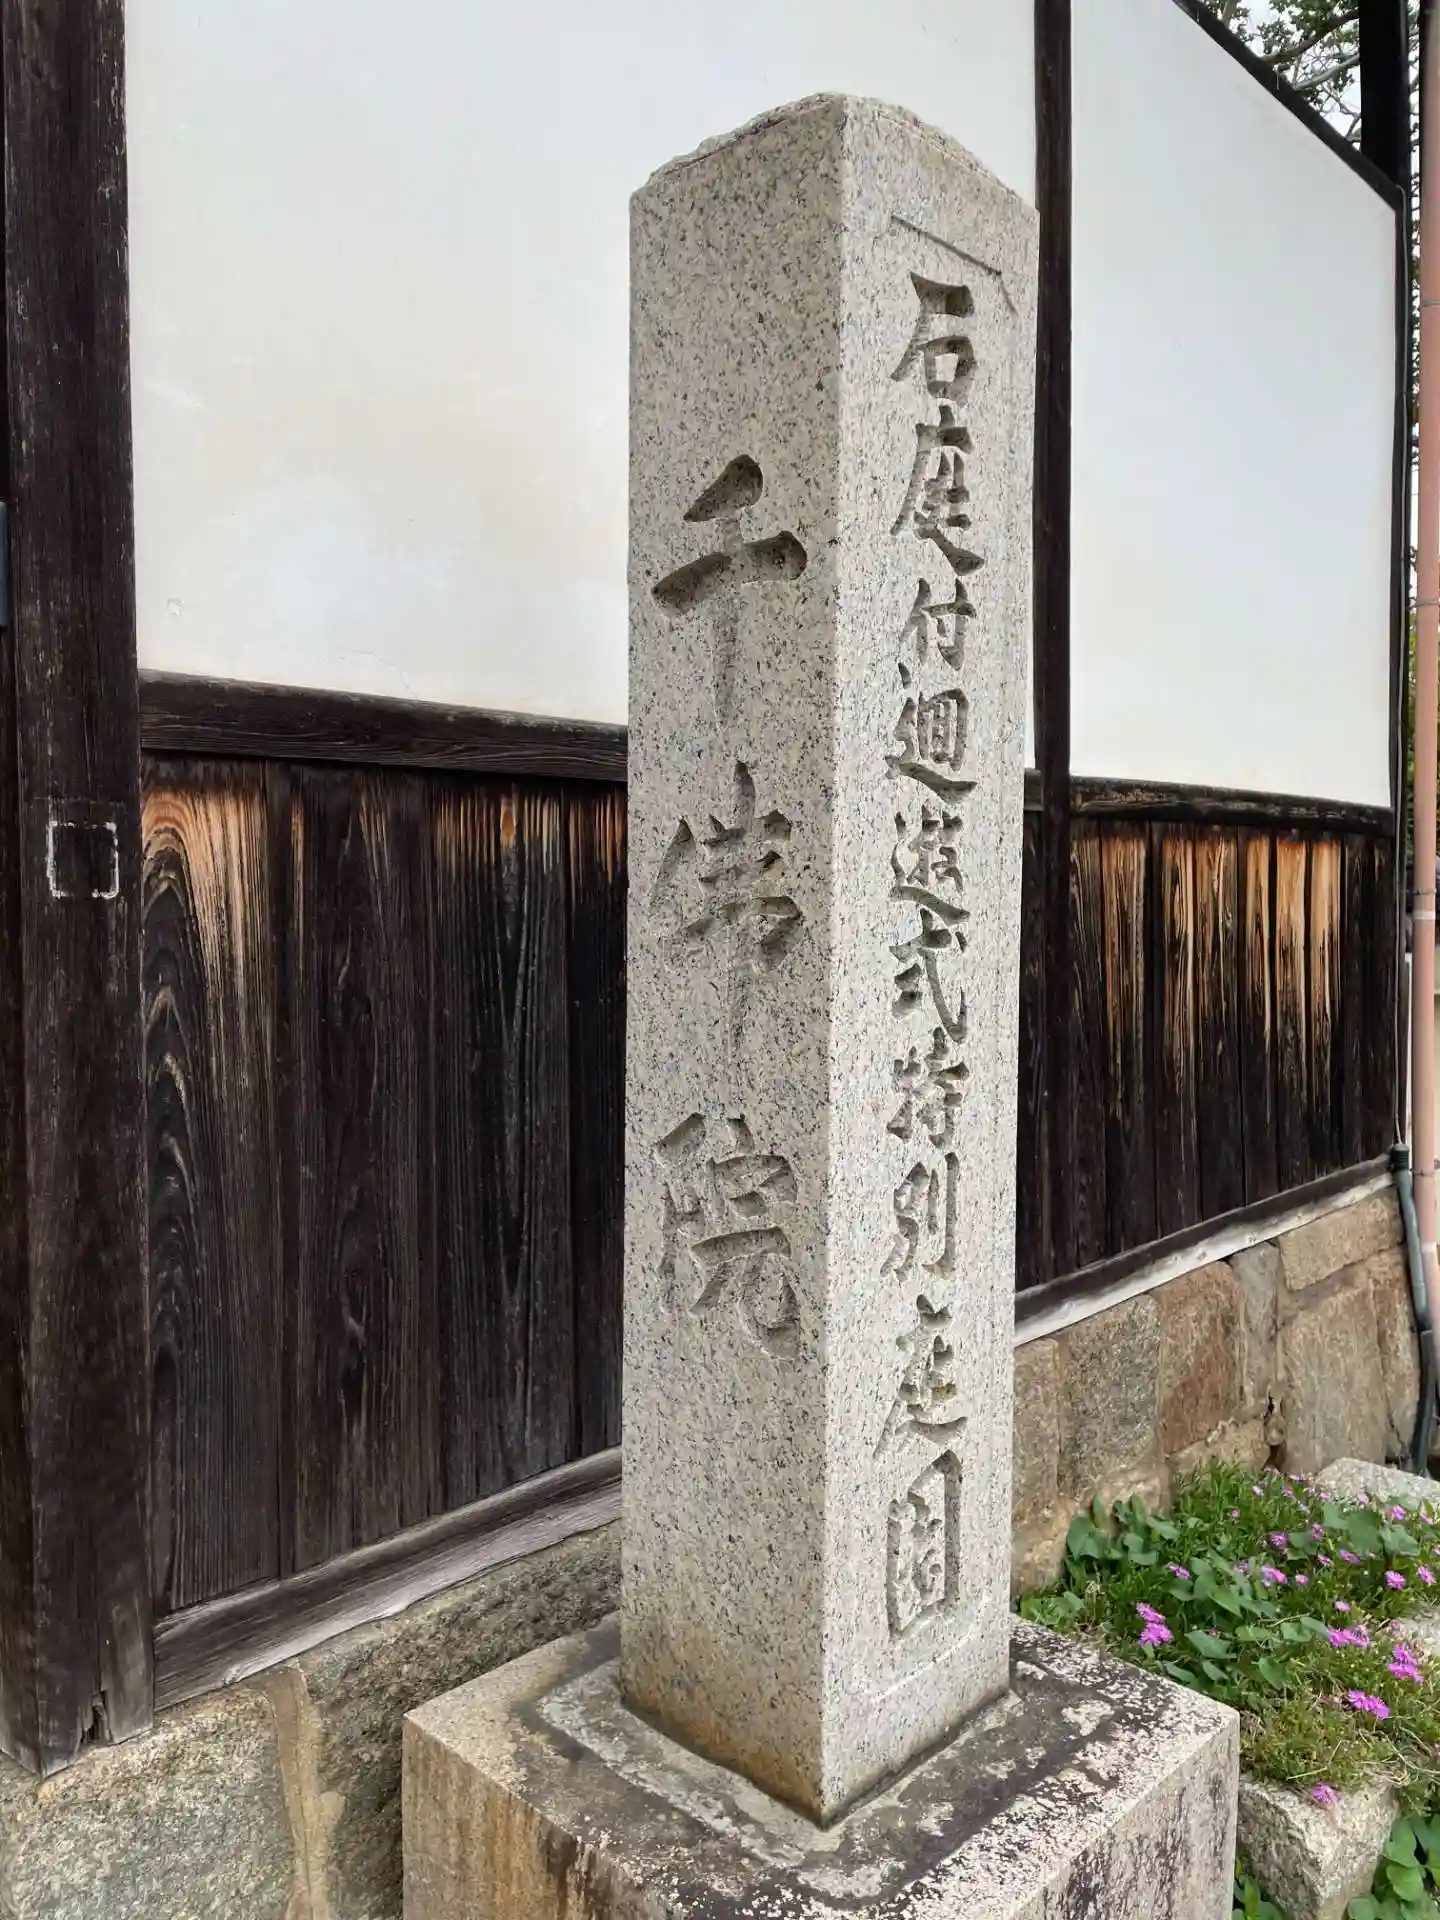 千佛院
「石庭付廻遊式特別庭園」